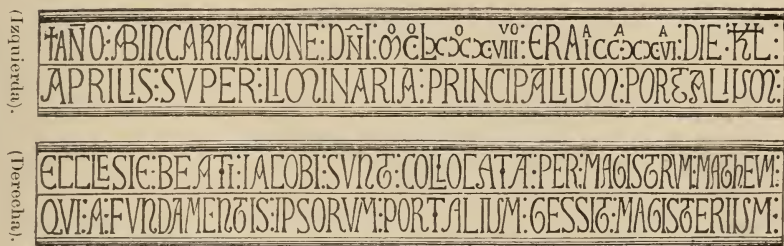 (Izquierda).
†AÑO:ABINCARNACIONE:DÑI:M̊C̊LXX̊XVIII:ERA I CCXXVI:DIE KL:
APRILIS:SVPER:LIMINARIA:PRINCIPALIUM:PORTALIUM:
(Derecha).
ECCLESIE:BEATI:IACOBI:SVNT:COLLOCATA:PER:MAGISTRVM:MATHEVM:
QVI:A:FVNDAMENTIS:IPSORVM:PORTALIUM:GESSIT:MAGISTERIUM: